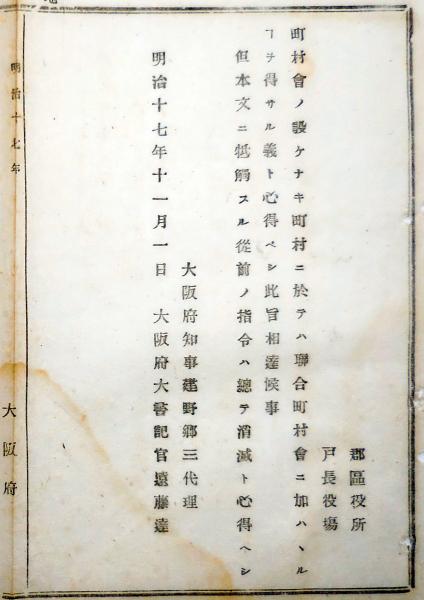 郡區役所
戸長役場
町村會ノ設ケナキ町村ニ於テハ聯合町村會ニ加ハヽル
ヿヲ得サル義ト心得ヘシ此旨相達候事
但本文ニ牴觸スル從前ノ指令ハ總テ消滅ト心得ヘシ
大阪府知事建野郷三代理
明治十七年十一月一日 大阪府大書記官遠藤達
明治十七年
大阪府